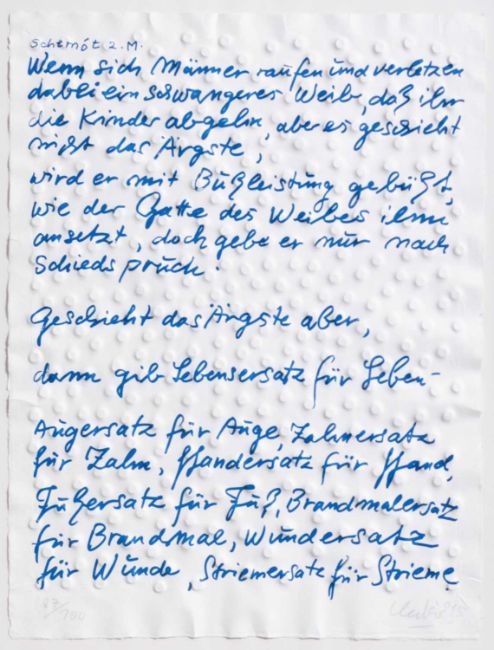 Schemót 2.M.
Wenn sich Männer raufen und verletzen
dabei ein schwangeres Weib, daß ihr
die Kinder abgehn, aber es geschieht
nicht das Ärgste,
wird er mit Bußleistung gebüßt,
wie der Gatte des Weibes ihm
ansetzt, doch gebe er nur nach
Schiedspruch.
Geschieht das Ärgste aber,
dann gib Lebensersatz für Leben–
Augersatz für Auge, Zahnersatz
für Zahn, Handersatz für Hand,
Fußersatz für Fuß, Brandmalersatz
für Brandmal, Wundersatz
für Wunde, Striemersatz für Strieme
/100